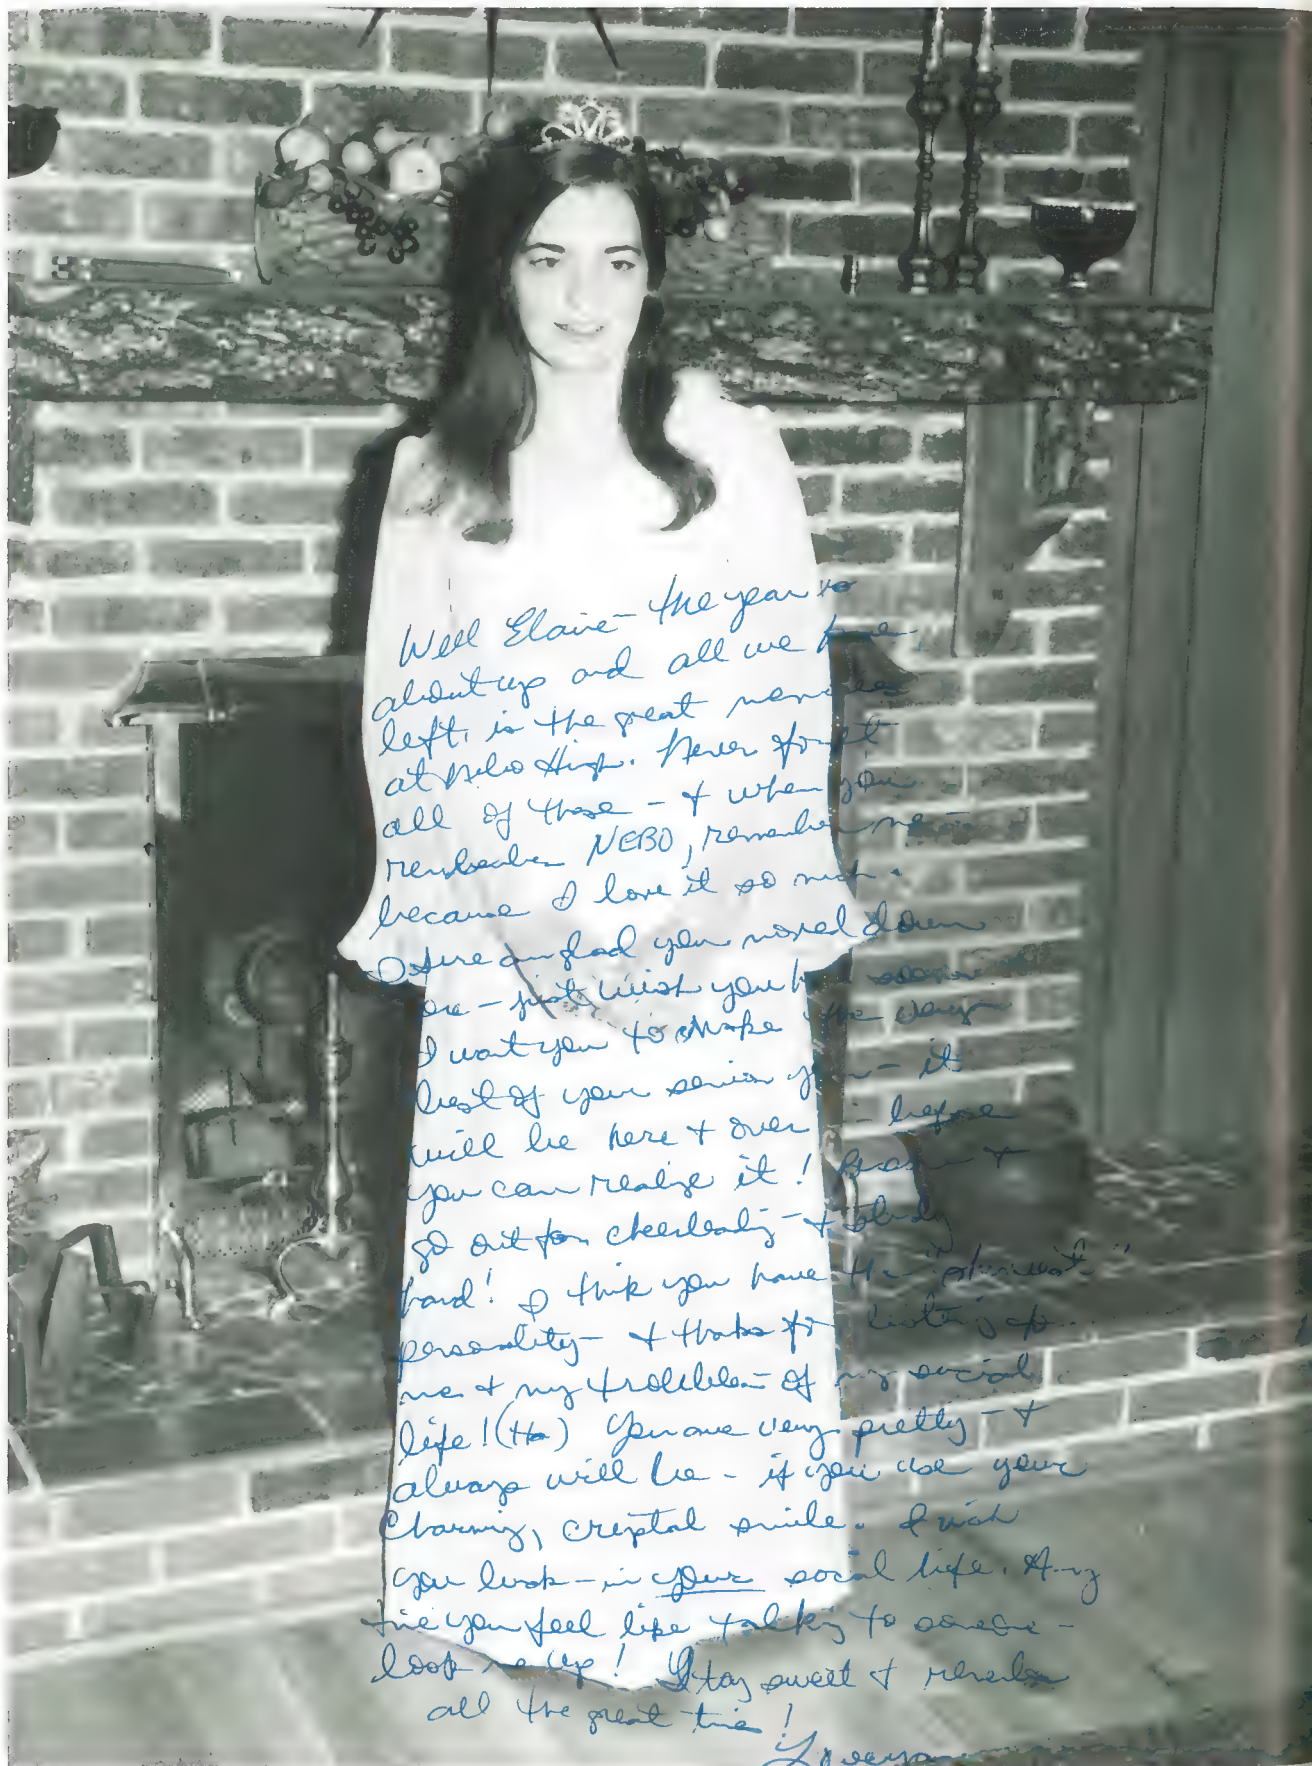 Well Elaine - the year is
about up and all we have
left, is the great memories
at Nebo High. Never forget
all of those - & when you
remember NEBO, remember me -
because I love it so much.
I sure am glad you moved down
- just wish you had
I want you to make the very
best of your senior year - it
will be here & over - before
you can realize it! &
go out for cheerleading - & study
hard! I think you have the
personality - & thanks for listening to
me & my troubles of my social
life! (Ha) You are very pretty - &
always will be - if you use your
charming, crystal smile. I wish
you luck - in your social life. Any
time you feel like talking to someone -
look me up! Stay sweet & remember
all the great times!